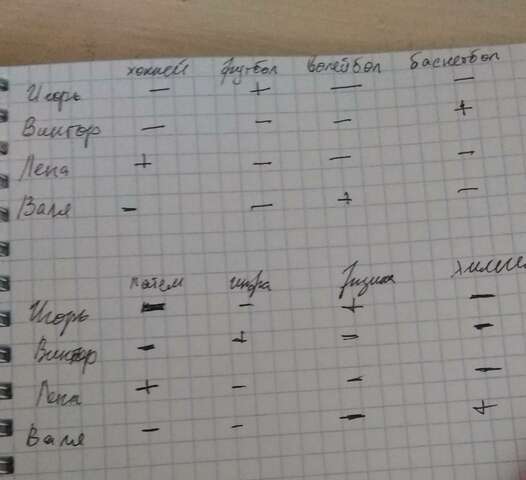 хоккей футбол волейбол баскетбол
Игорь — + — —
Виктор — — — +
Лена + — — —
Валя - — + —
матем инфра физика химия
Игорь - - + -
Виктор - + = -
Лена + - - -
Валя - - - +